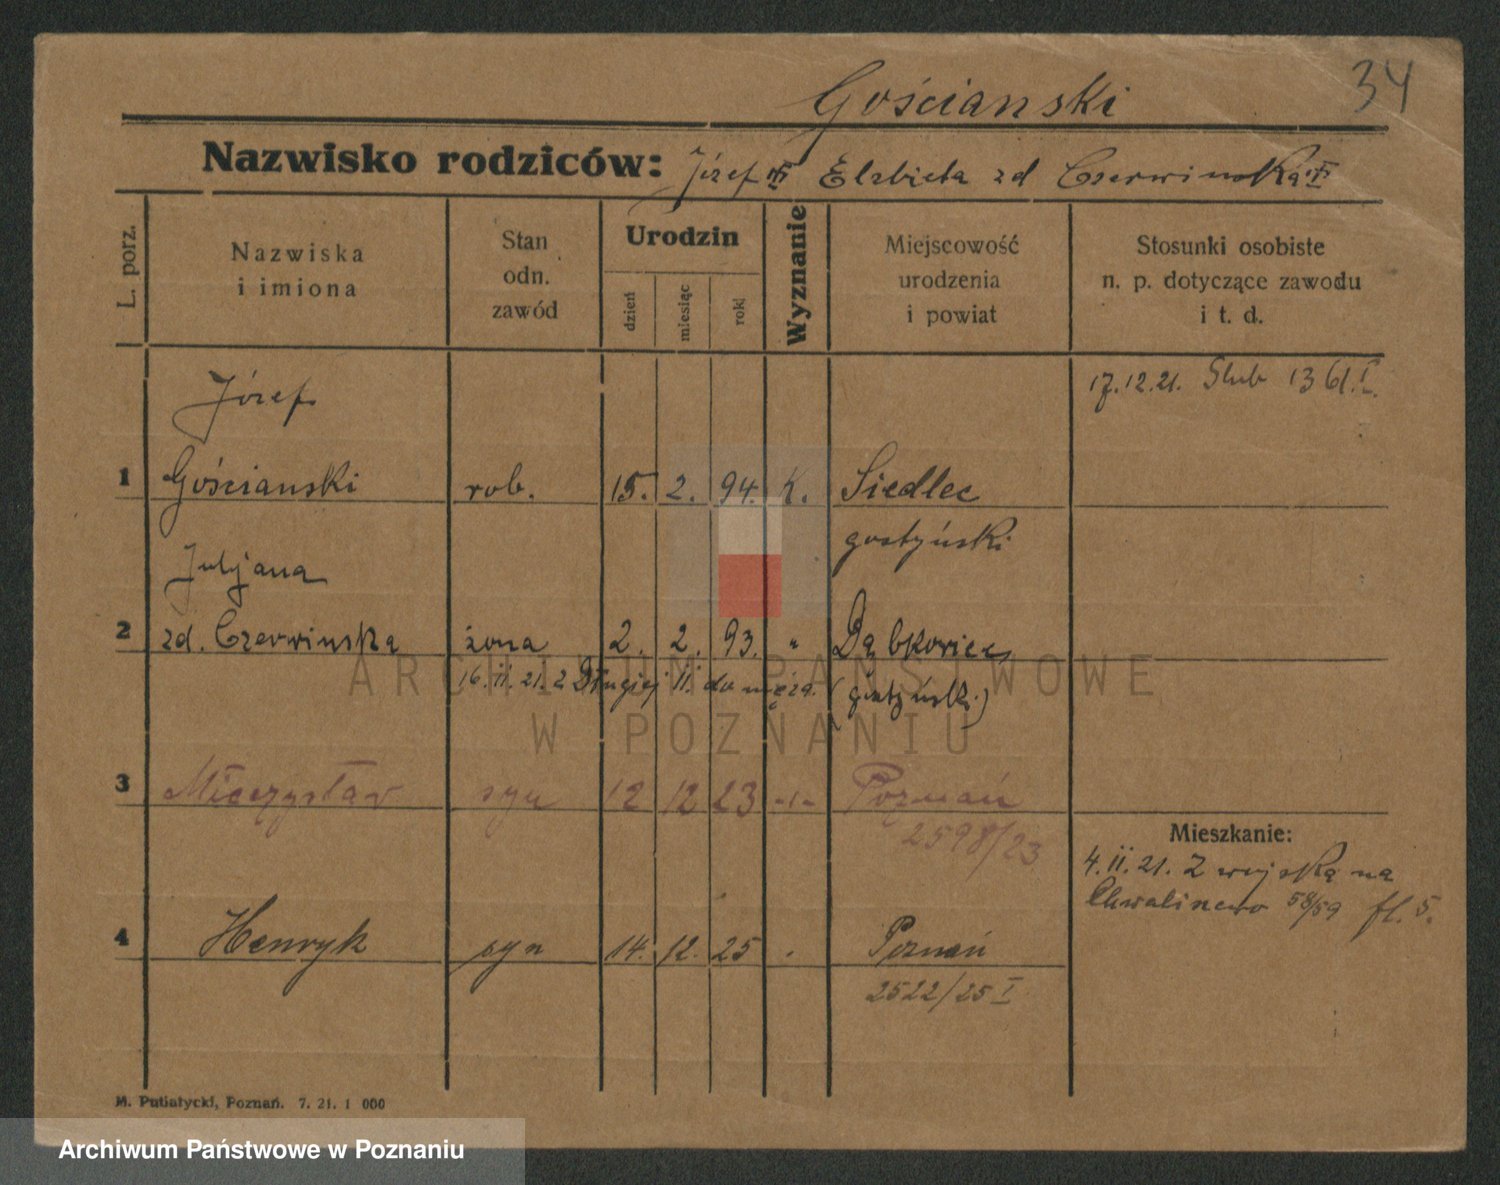 34
Gościanski
Nazwisko rodziców: Józef Elzbieta zd Czerwinska
L. porz.
Nazwiska
i imiona
Stan
odn.
zawód
Urodzin
dzień
miesiąc
rok
Wyznanie
Miejscowość
urodzenia
i powiat
Stosunki osobiste
n. p. dotyczące zawodu
i t. d.
Józef
17.12.21. Slub 1361.I.
1 Gościanski rob. 15. 2. 94. K. Siedlec
gostyński
Julijana
2 zd. Czerwinska żona 2. 2. 93. " Dąbkowice
16.11.21. z Długiej 11. do męża. (gostyńsk.)
3 Mieczysław syn 12 12 23 -"- Poznań
2598/23
Mieszkanie:
4.11.21. Z wojska na
Chwaliszewo 58/59 fl. 5.
4 Henryk syn 14. 12. 25 Poznań
2522/25 I
M. Putiatycki, Poznań. 7. 21. 1 000
ARCHIWUM PAŃSTWOWE
W POZNANIU
Archiwum Państwowe w Poznaniu